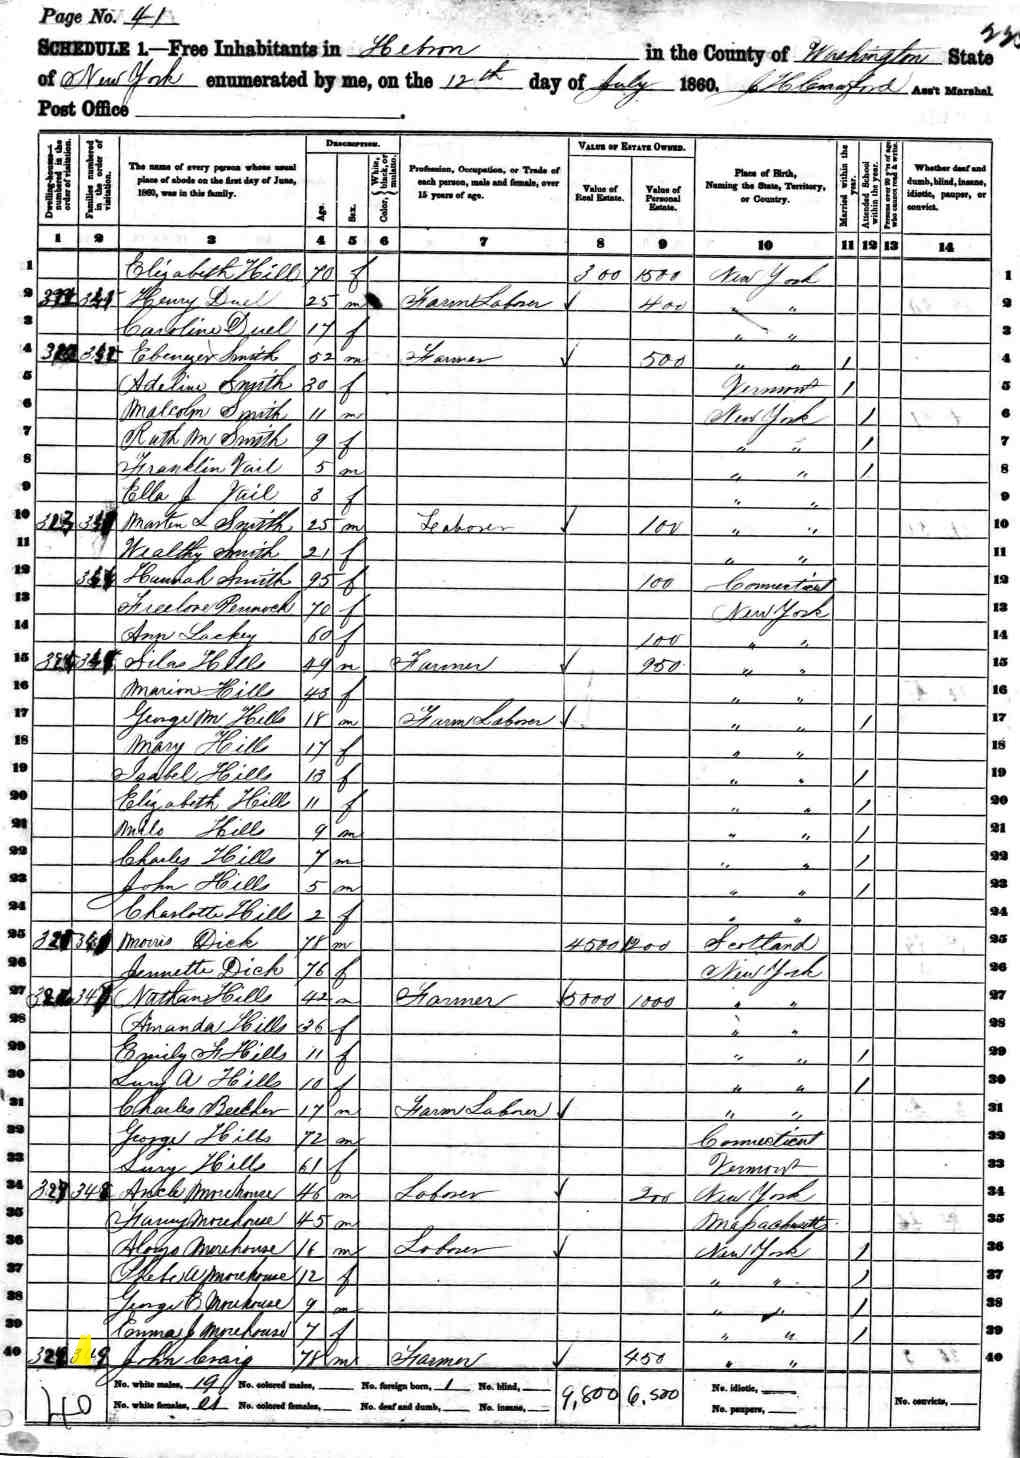 Page No. 41
SCHEDULE 1.—Free Inhabitants in Hebron in the County of Washington State
of New York enumerated by me, on the 12th day of July 1860. Ass't Marshal.
Post Office
Dwelling-houses— numbered in the order of visitation.
Families numbered in the order of visitation.
The name of every person whose usual place of abode on the first day of June, 1860, was in this family.
DESCRIPTION.
Age.
Sex.
Color, White, black, or mulatto.
Profession, Occupation, or Trade of each person, male and female, over 15 years of age.
VALUE OF ESTATE OWNED.
Value of Real Estate.
Value of Personal Estate.
Place of Birth, Naming the State, Territory, or Country.
Married within the year.
Attended School within the year.
Persons over 20 y'rs of age who cannot read & write.
Whether deaf and dumb, blind, insane, idiotic, pauper, or convict.
1 2 3 4 5 6 7 8 9 10 11 12 13 14
1 Elizabeth Hill 70 f 300 1500 New York 1
2 Henry Duel 25 m Farm Laborer 400 " " 2
3 Caroline Duel 17 f " " 3
4 Ebenezer Smith 52 m Farmer 500 " " 1 4
5 Adeline Smith 30 f Vermont 1 5
6 Malcolm Smith 11 m New York 1 6
7 Ruth M Smith 9 f " " 1 7
8 Franklin Vail 5 m " " 1 8
9 Ella J Vail 3 f " " 9
10 Martin L Smith 25 m Leaborer 100 " " 10
11 Wealthy Smith 21 f " " 11
12 Hannah Smith 95 f 100 Connecticut 12
13 Freelove Pennock 70 f New York 13
14 Ann Lackey 60 f 100 " " 14
15 Silas Hills 49 m Farmer 950 " " 15
16 Marion Hills 43 f " " 16
17 George M Hills 18 m Farm Laborer " " 1 17
18 Mary Hills 17 f " " 18
19 Isabel Hills 13 f " " 1 19
20 Elizabeth Hill 11 f " " 1 20
21 Milo Hills 9 m " " 1 21
22 Charles Hills 7 m " " 1 22
23 John Hills 5 m " " 1 23
24 Charlotte Hills 2 f " " 24
25 Morris Dick 78 m 4500 1200 Scotland 25
26 Jennette Dick 76 f New York 26
27 Nathan Hills 42 m Farmer 5000 1000 " " 27
28 Amanda Hills 36 f " " 28
29 Emily F Hills 11 f " " 1 29
30 Lucy A Hills 10 f " " 1 30
31 Charles Beecher 17 m Farm Laborer " " 31
32 George Hills 72 m Connecticut 32
33 Lucy Hills 61 f Vermont 33
34 Morehouse 46 m Laborer 200 New York 34
35 Fanny Morehouse 45 m Massachusetts 35
36 Alonzo Morehouse 16 m Laborer New York 1 36
37 Phebe A Morehouse 12 f " " 1 37
38 George E Morehouse 9 m " " 1 38
39 Emma J Morehouse 7 f " " 1 39
40 John Craig 78 m Farmer 450 " " 40
No. white males, 19 No. colored males, No. foreign born, 1 No. blind, 9,800 6,500 No. idiotic,
40 No. white females, 21 No. colored females, No. deaf and dumb, No. insane, No. paupers, No. convicts,